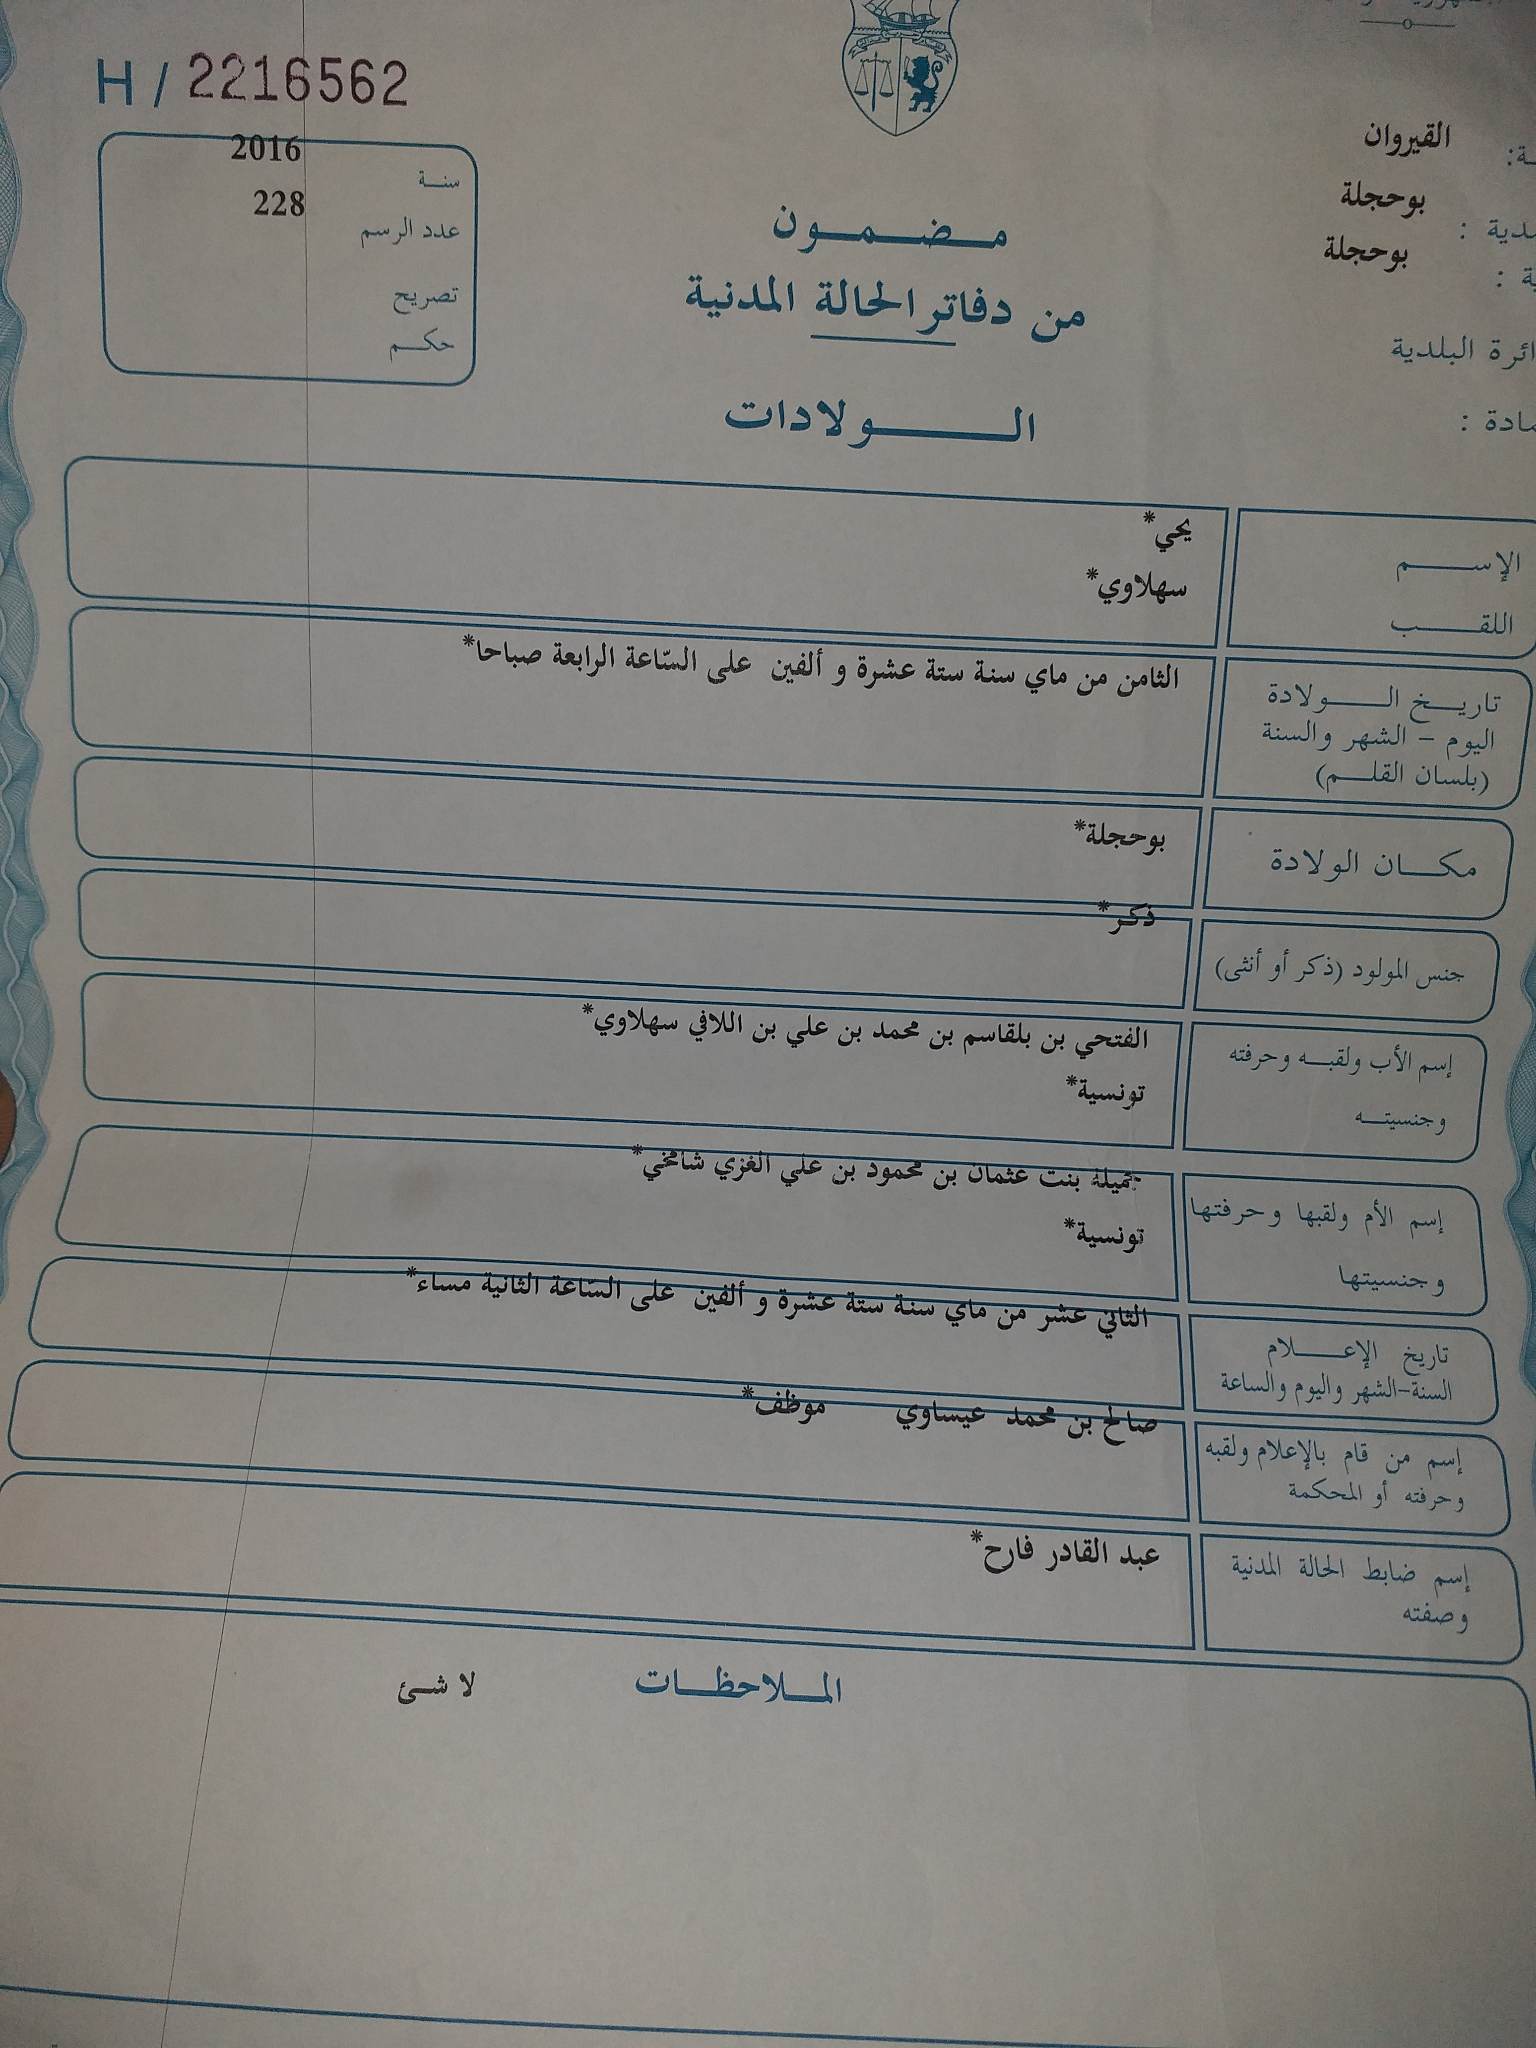 H / 2216562
سنة 2016
عدد الرسم 228
تصريح
حكم
القيروان
بوحجلة
بوحجلة
البلدية
مضمون
من دفاتر الحالة المدنية
الولادات
الإسم
يحي*
اللقب
سهلاوي*
تاريخ الولادة
اليوم - الشهر والسنة
(بلسان القلم)
الثامن من ماي سنة ستة عشرة و ألفين على السّاعة الرابعة صباحا*
مكان الولادة
بوحجلة*
جنس المولود (ذكر أو أنثى)
ذكر*
إسم الأب ولقبه وحرفته
وجنسيته
الفتحي بن بلقاسم بن محمد بن علي بن اللافي سهلاوي*
تونسية*
إسم الأم ولقبها وحرفتها
وجنسيتها
جميلة بنت عثمان بن محمود بن علي الغزي شامخي*
تونسية*
تاريخ الإعلام
السنة-الشهر واليوم والساعة
الثاني عشر من ماي سنة ستة عشرة و ألفين على السّاعة الثانية مساء*
إسم من قام بالإعلام ولقبه
وحرفته أو المحكمة
صالح بن محمد عيساوي موظف*
إسم ضابط الحالة المدنية
وصفته
عبد القادر فارح*
الملاحظات لا شئ